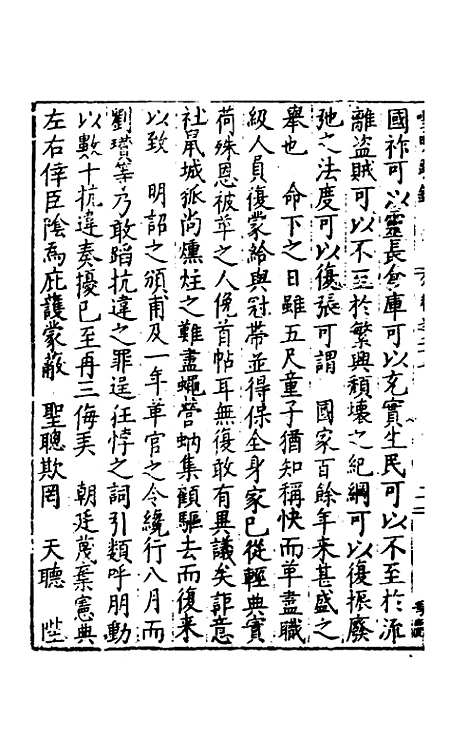 國祚可以靈長倉庫可以充實生民可以不至於流
離盜賊可以不至於繁興頹壞之紀綱可以復振廢
弛之法度可以復張可謂　國家百餘年來甚盛之
舉也　命下之日雖五尺童子猶知稱快而革盡職
級人員復蒙給與冠帶並得保全身家已從輕典實
荷殊恩被革之人俛首帖耳無復敢有異議矣詎意
社鼠城狐尚燻炷之難盡蠅營蚋集顧驅去而復來
以致　明詔之頒甫及一年革官之令纔行八月而
劉瓚等乃敢蹈抗違之罪逞狂悖之詞引類呼朋動
以數十抗違奏擾已至再三侮弄　朝廷蔑棄憲典
左右倖臣陰為庇護蒙蔽　聖聰欺罔　天聽　陛